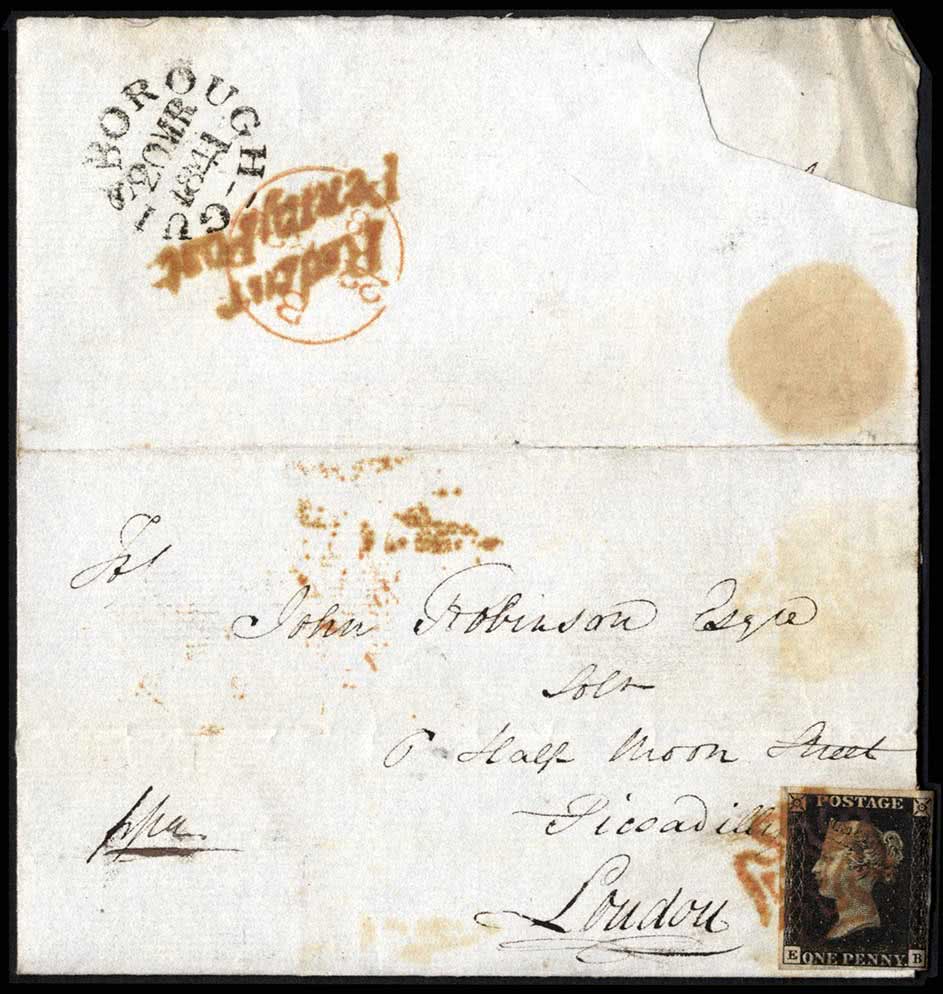 BOROUGH-GU
20 MR
1841
Regent
John Robinson Esqre
Solr
6 Half Moon Street
Piccadilly
London
ppa
POSTAGE
E ONE PENNY. B